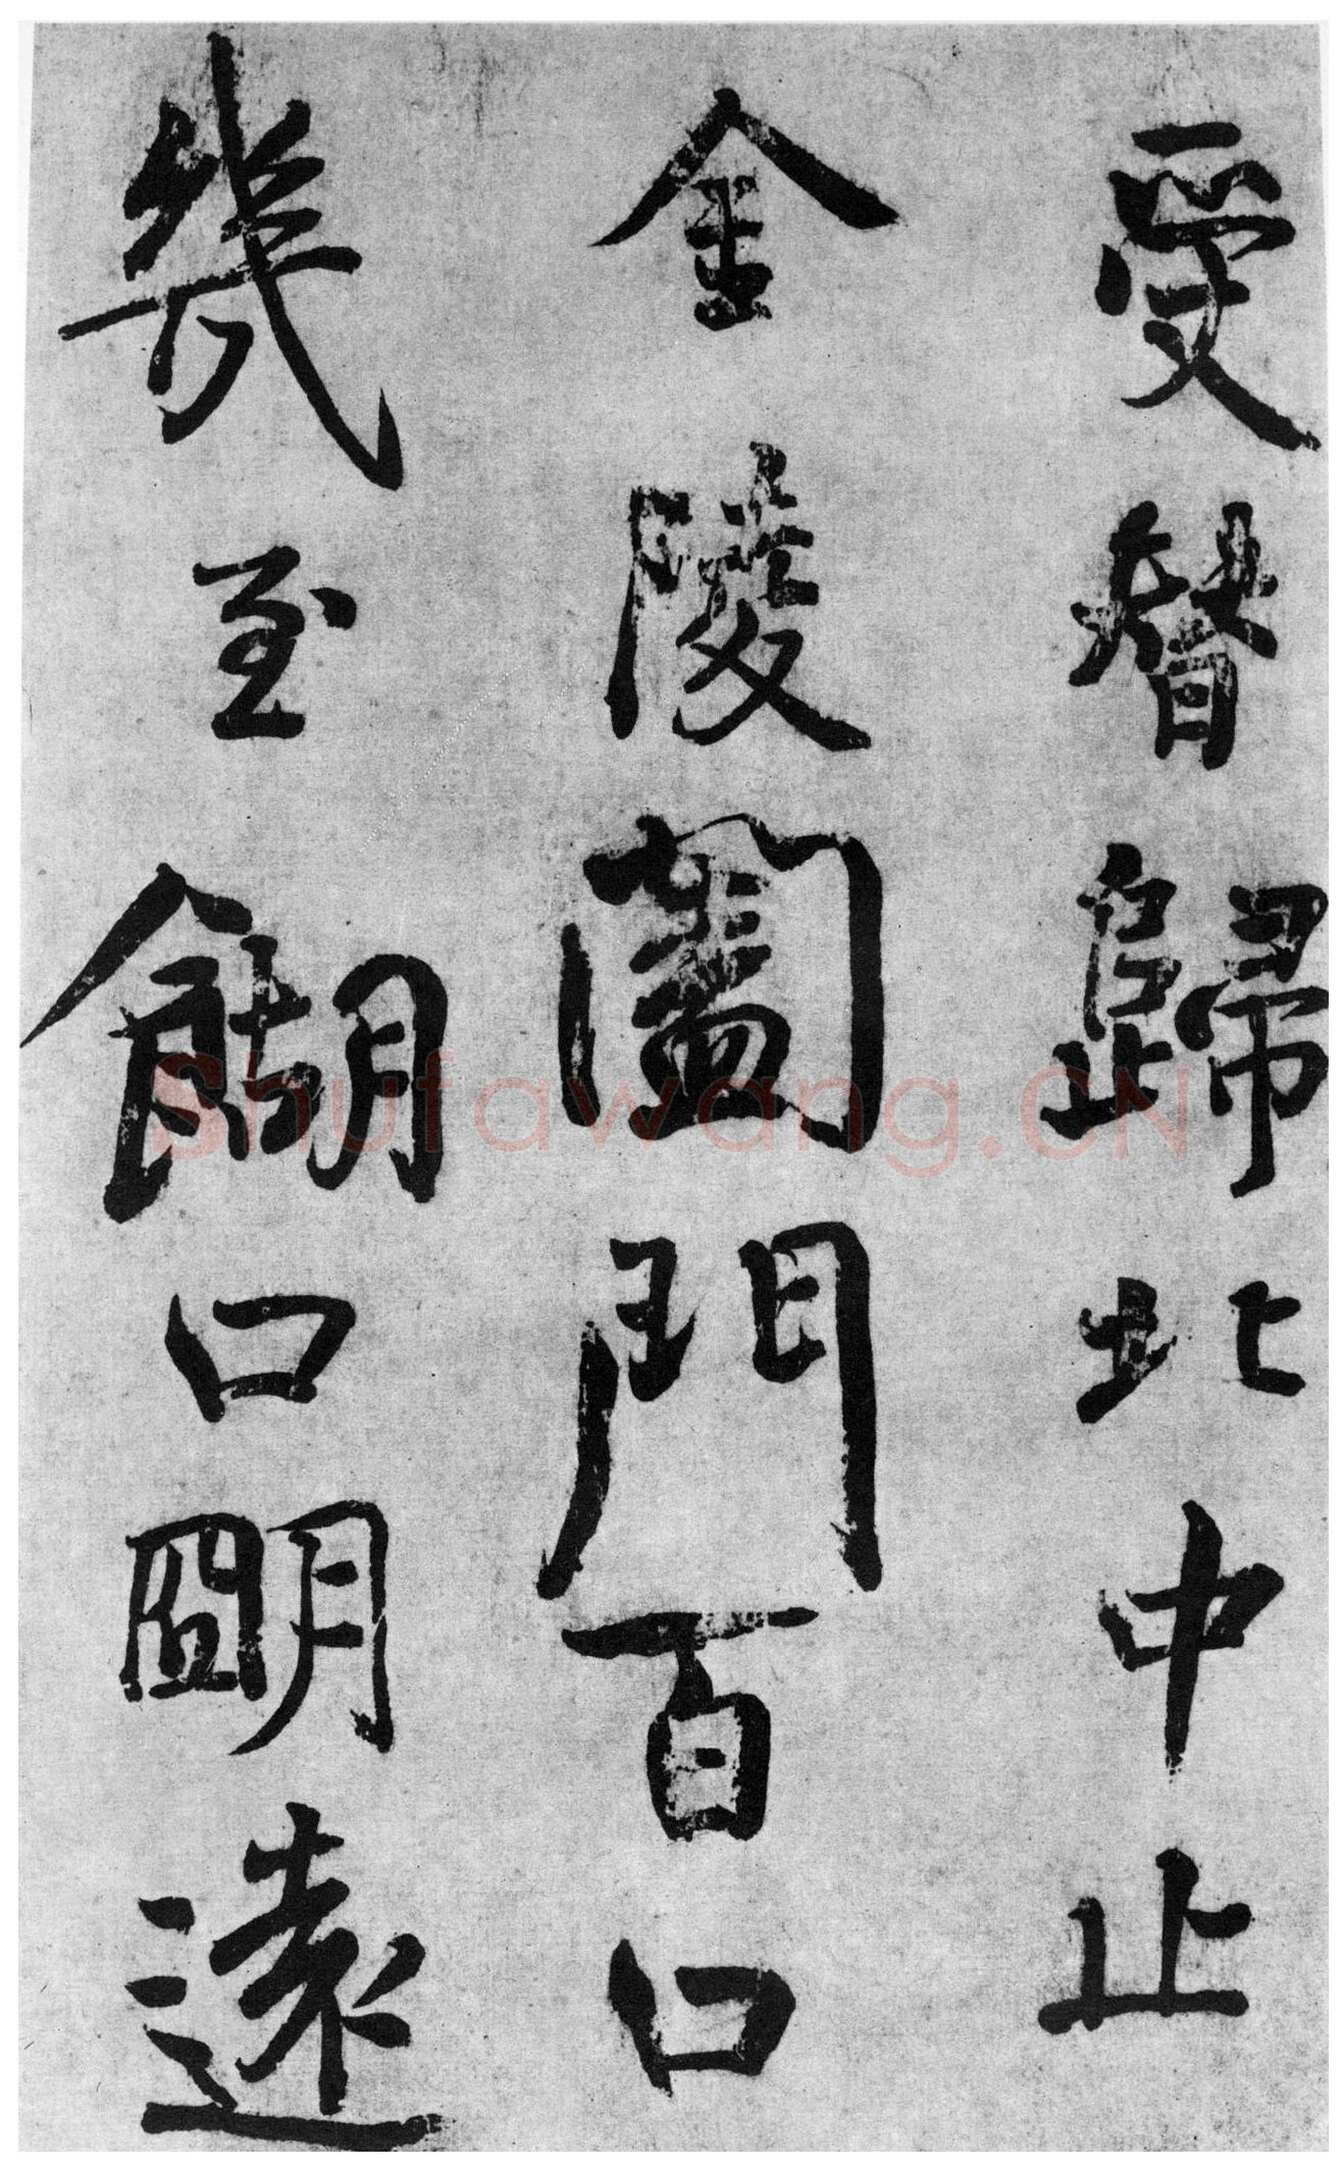 受替歸北中止
金陵闔門百口
幾至餬口明遠
Shufawang.CN